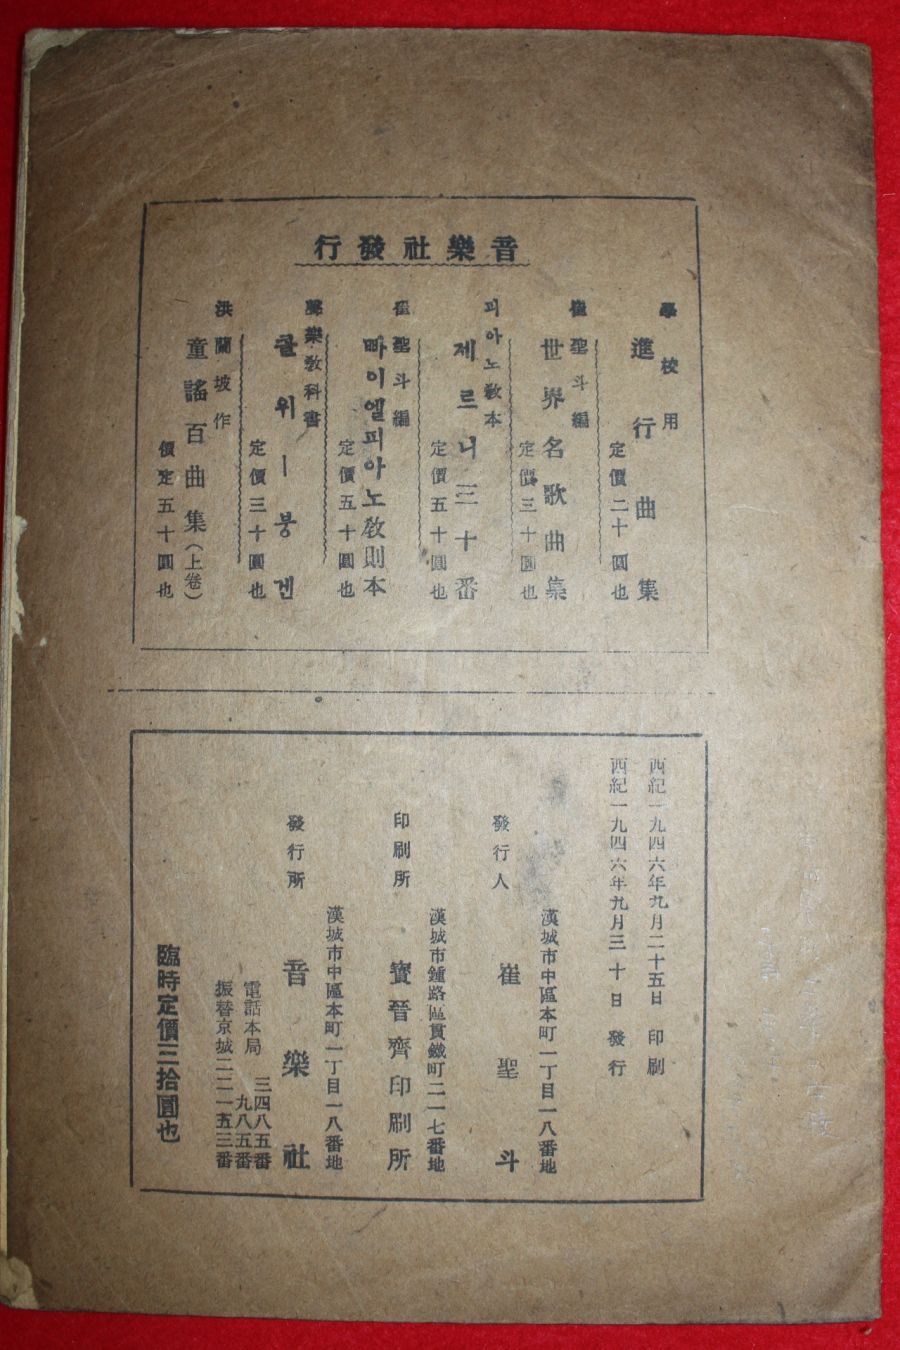 音樂社發行
學校用
進行曲集
定價二十圓也
崔聖斗編
世界名歌曲集
定價三十圓也
피아노敎本
제르니三十番
定價五十圓也
崔聖斗編
빠이엘피아노敎則本
定價五十圓也
聲樂敎科書
콜위ー붕겐
定價三十圓也
洪蘭坡作
童謠百曲集(上卷)
價定五十圓也
西紀一九四六年九月二十五日 印刷
西紀一九四六年九月三十日 發行
漢城市中區本町一丁目一八番地
發行人 崔聖斗
漢城市鍾路區貫鐵町二一七番地
印刷所 寶晉齊印刷所
漢城市中區本町一丁目一八番地
發行所 音樂社
電話本局 三四八五番
九八五番
振替京城二二一五三番
臨時定價三拾圓也